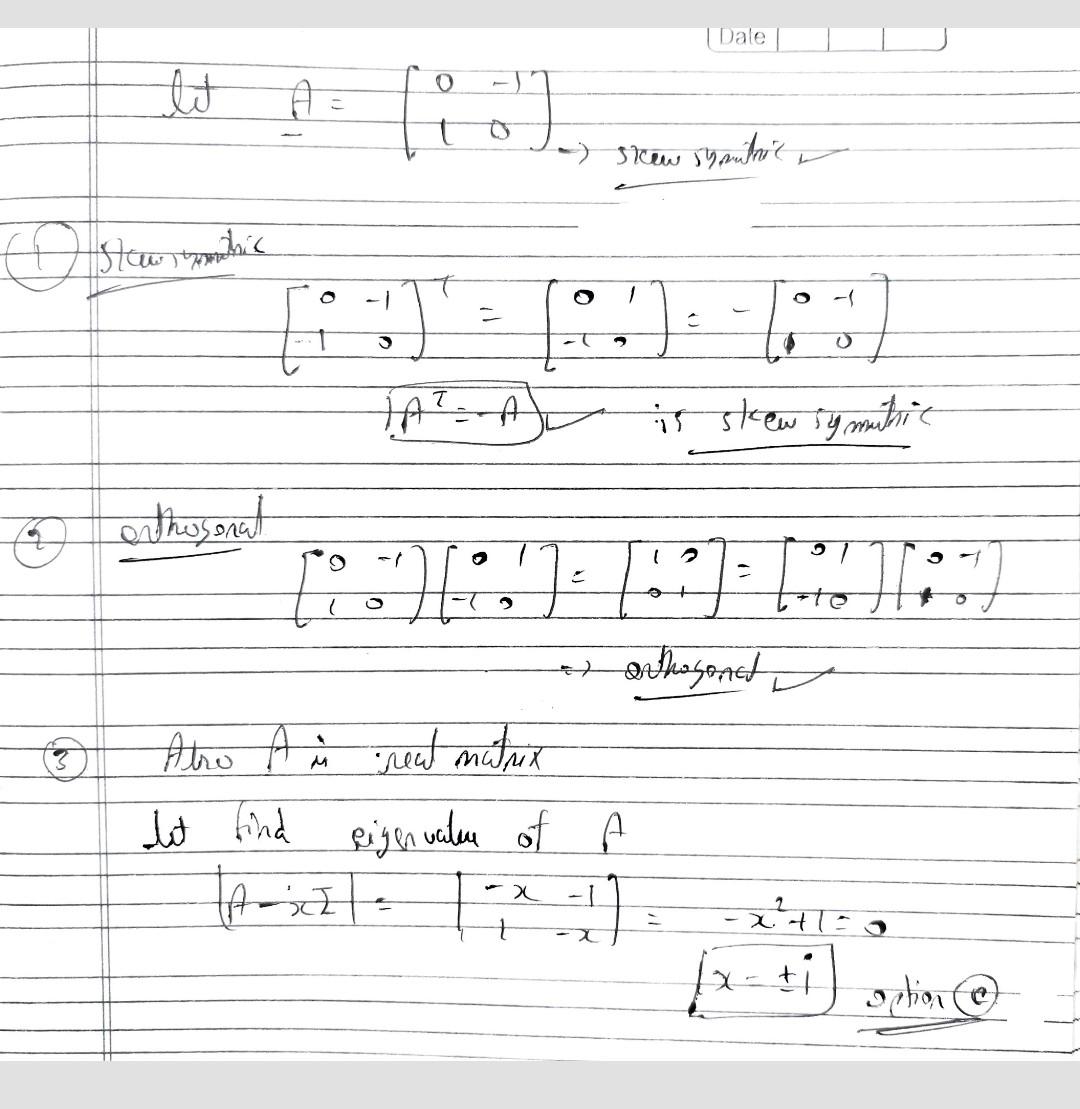 Date
let A = [0 -1; 1 0] -> skew symmetric ✓
① Skew symmetric
[0 -1; -1 0]ᵀ = [0 1; -1 0] = -[0 -1; 1 0]
Aᵀ = -A ✓ is skew symmetric
② orthogonal
[0 -1; 1 0] [0 1; -1 0] = [1 0; 0 1] = [0 1; -1 0] [0 -1; 1 0]
=> orthogonal ✓
③ Also A is real matrix
let find eigen value of A
|A - xI| = |-x -1; 1 -x| = -x² + 1 = 0
x = ±i option ⓒ